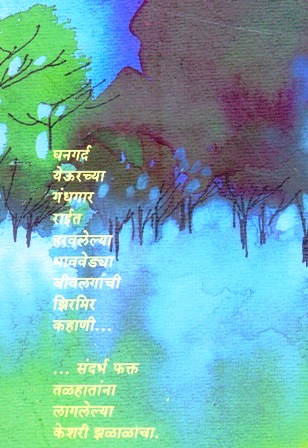 घनगर्द
येऊरच्या
गंधगार
राईत
हरवलेल्या
भाववेड्या
जीवलगांची
झिरमिर
कहाणी...
... संदर्भ फक्त
तळहातांना
लागलेल्या
केशरी झळाळाचा.